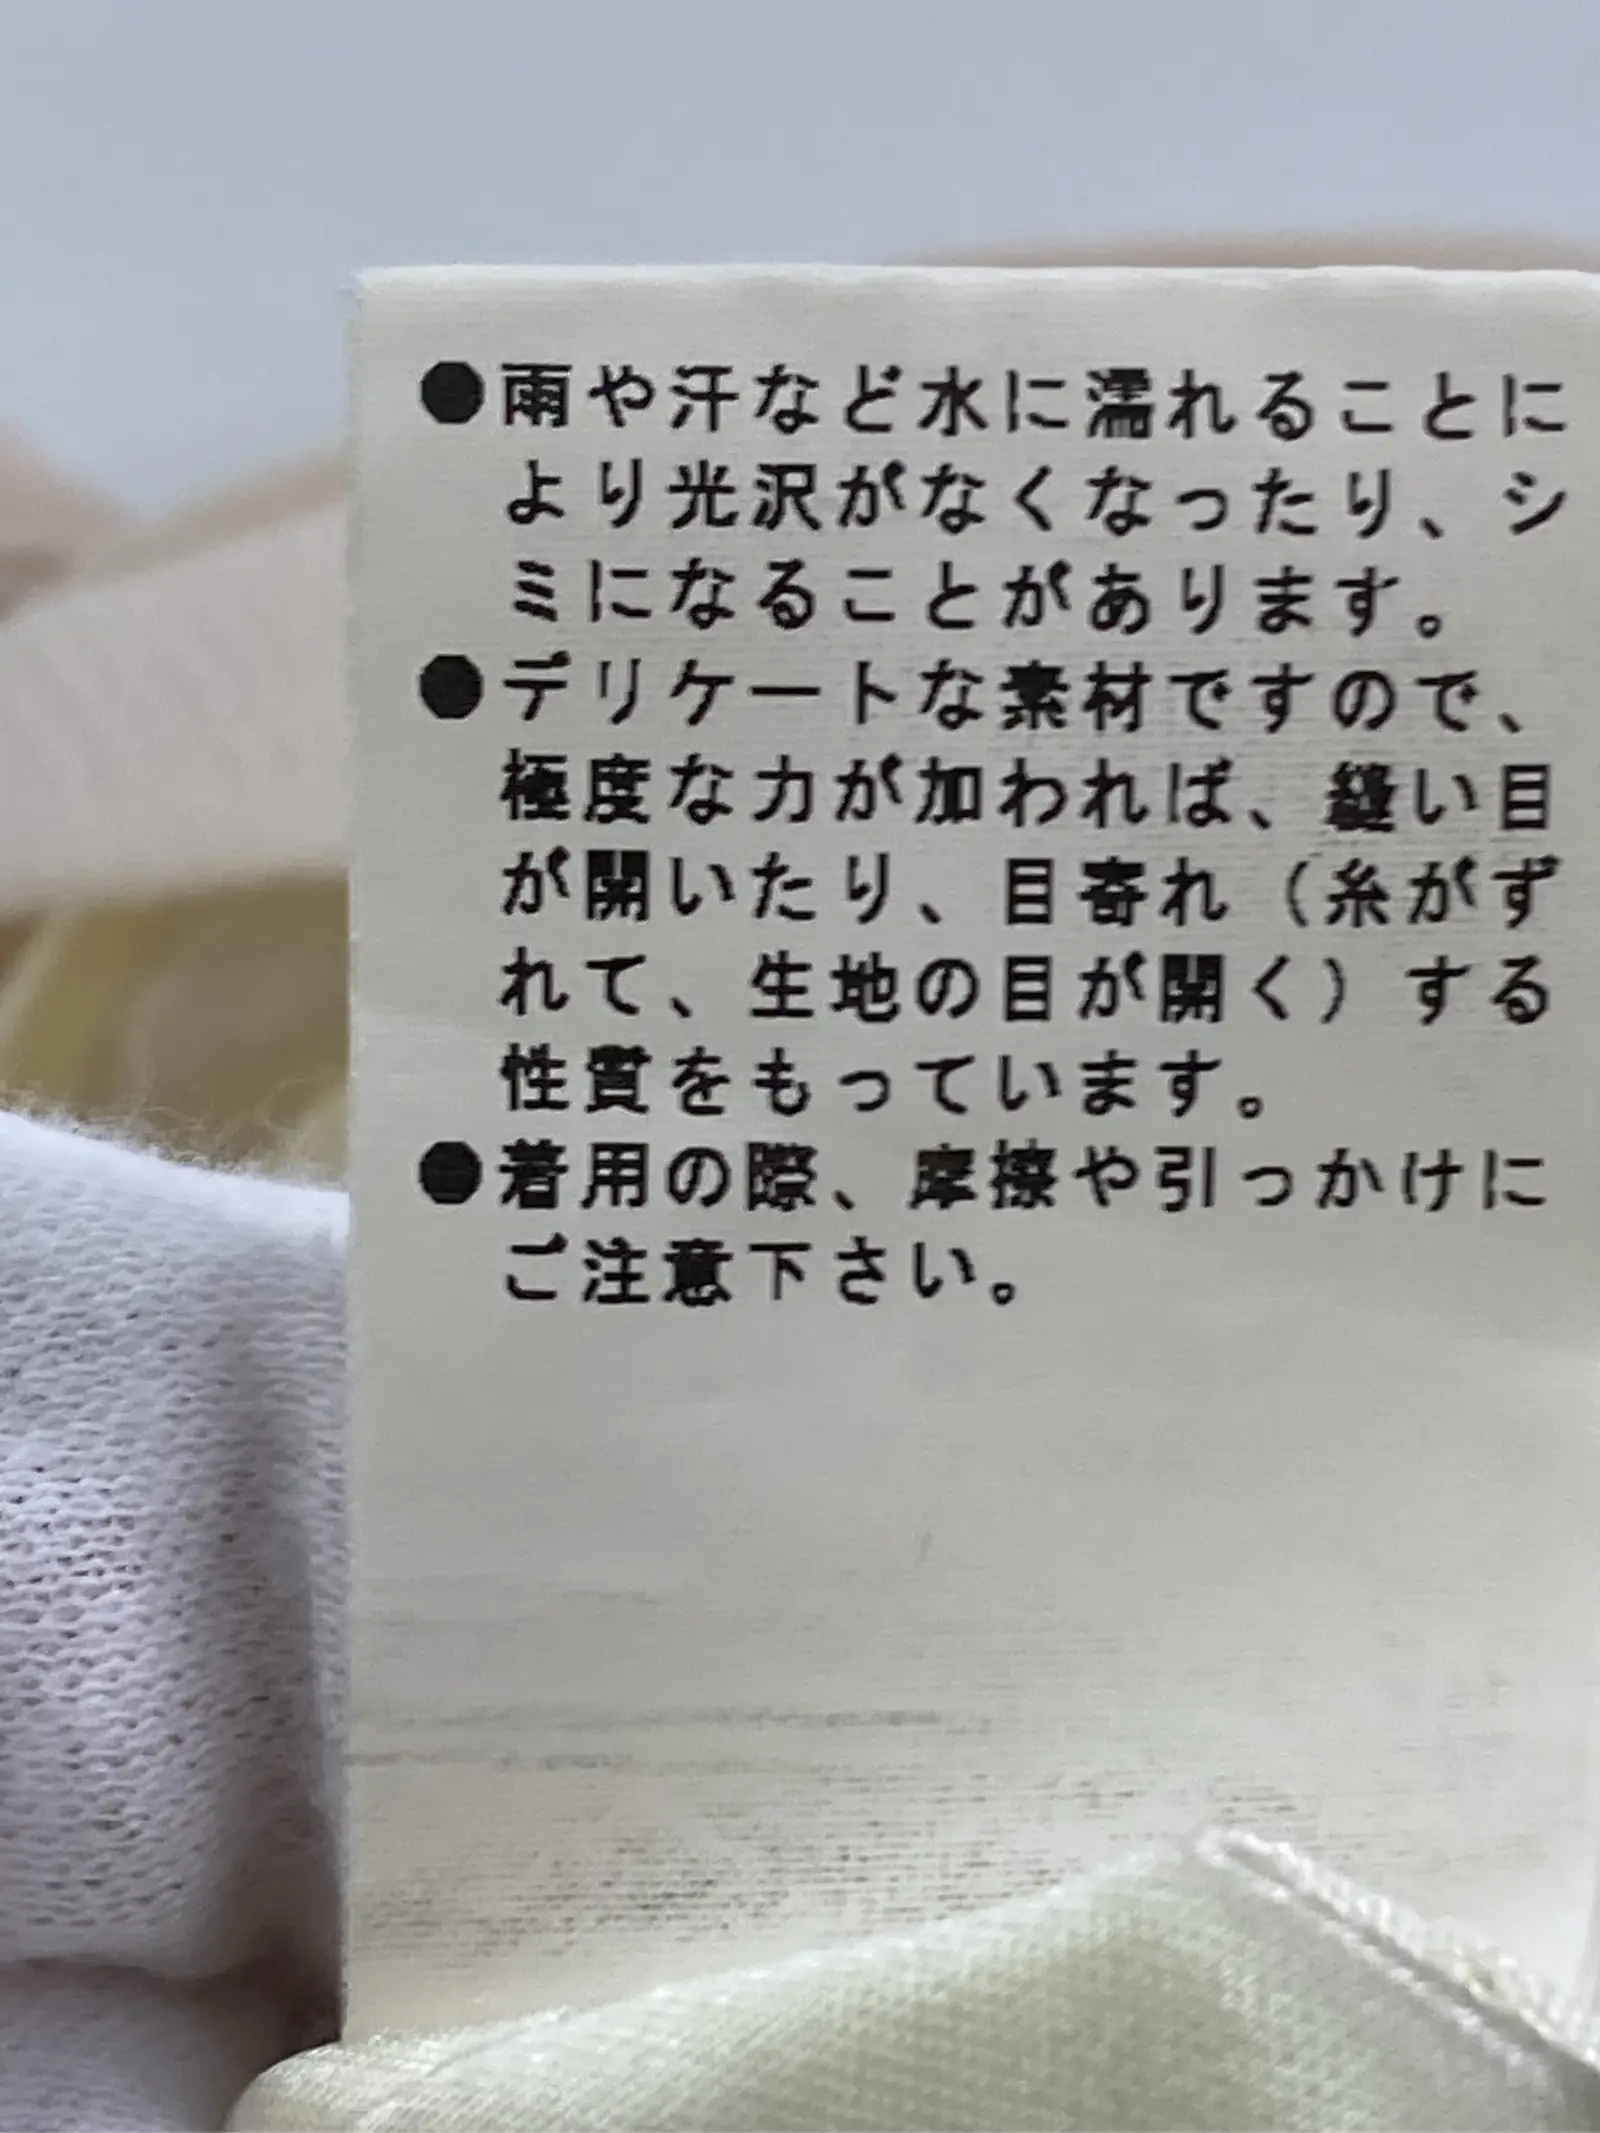 ●雨や汗など水に濡れることに
より光沢がなくなったり、シ
ミになることがあります。
●デリケートな素材ですので、
極度な力が加われば、縫い目
が開いたり、目寄れ（糸がず
れて、生地の目が開く）する
性質をもっています。
●着用の際、摩擦や引っかけに
ご注意下さい。